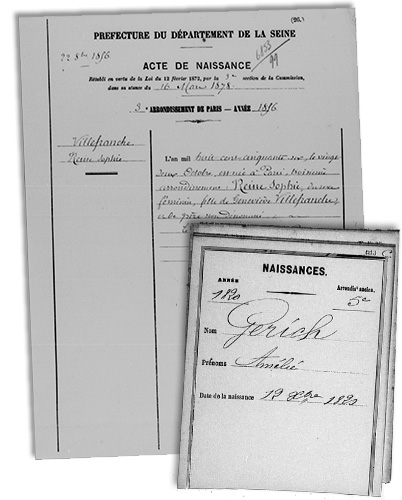 (26.)
PREFECTURE DU DÉPARTEMENT DE LA SEINE
22 8bre 1856
ACTE DE NAISSANCE
6855
99
Rétabli en vertu de la Loi du 12 février 1872, par la 3e section de la Commission,
dans sa séance du 16 Mars 1878
3e ARRONDISSEMENT DE PARIS — ANNÉE 1856
Villefranche
Reine Sophie
L'an mil huit cent cinquante six, le vingt
deux Octobre, est née à Paris, troisième
arrondissement Reine Sophie, du sexe
féminin, fille de Geneviève Villefranche,
et de père non dénommé
NAISSANCES.
ANNÉE
1820
Arrondist ancien.
5e
Nom Gerich
Prénoms Amélie
Date de la naissance 12 xbre 1820